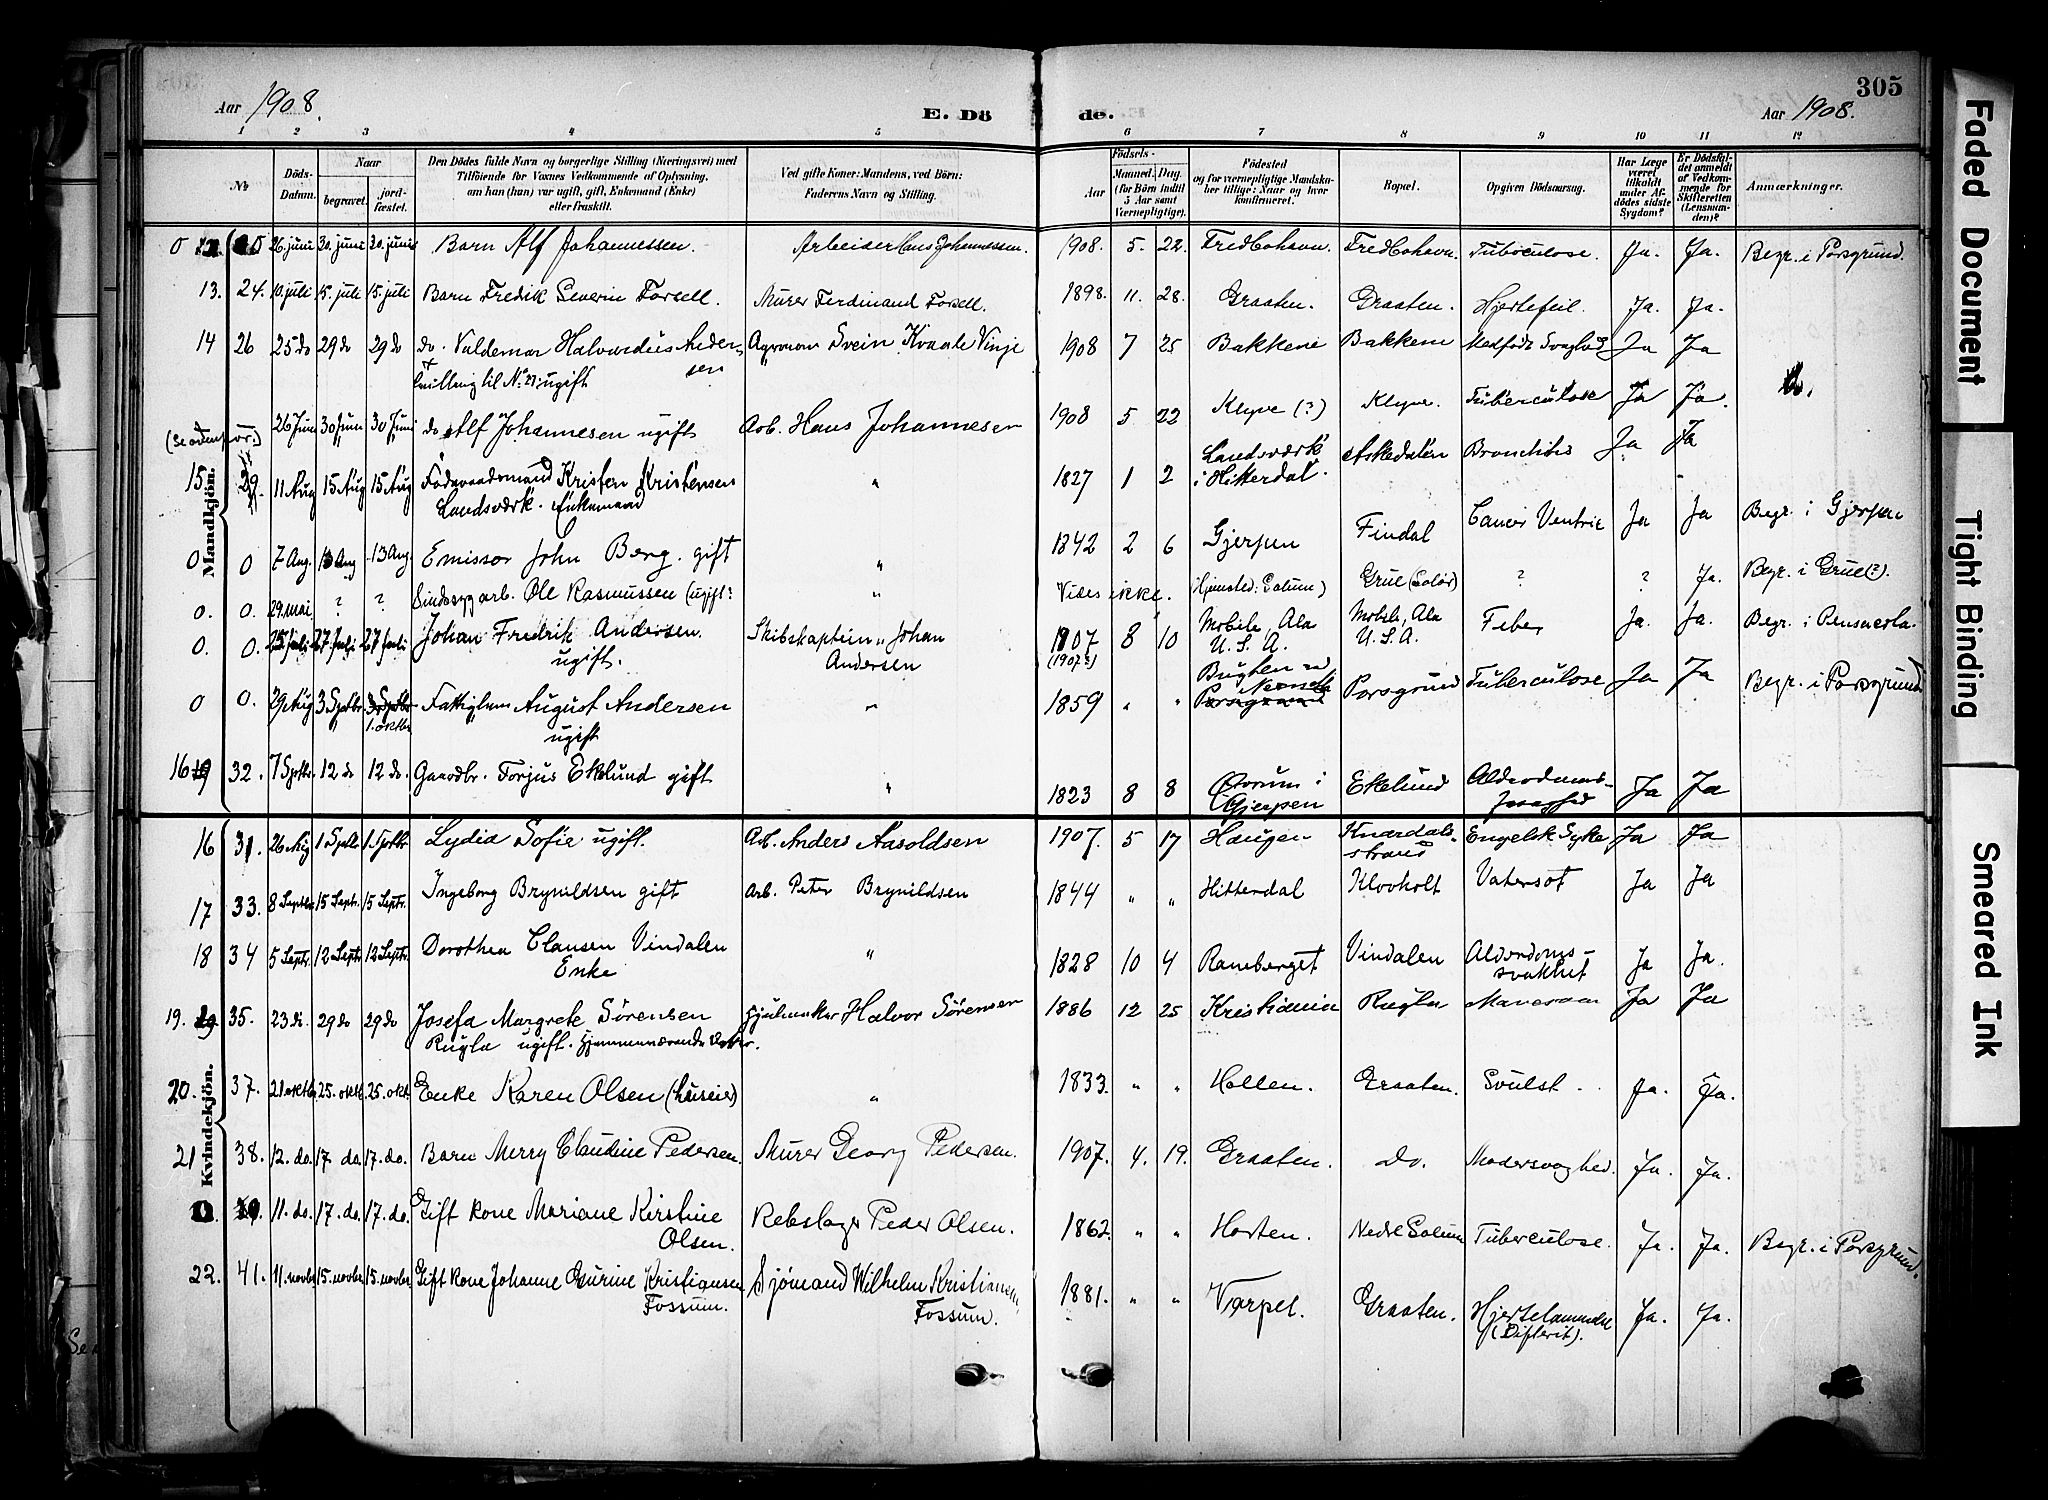 305
Aar 1908. E. Dö de. Aar 1908.
1 2 3 4 5 6 7 8 9 10 11 12
№ Döds-Datum. Naar begravet. jord-fæstet. Den Dödes fulde Navn og borgerlige Stilling (Næringsvei) med Tilföiende for Voxnes Vedkommende af Oplysning, om han (hun) var ugift, gift, Enkemand (Enke) eller fraskilt. Ved gifte Koner: Mandens, ved Börn: Faderens Navn og Stilling. Födsels- Aar Maaned. Dag. (for Börn indtil 5 Aar samt Værnepligtige). Födested og for værnepligtige Mandskaber tillige: Naar og hvor konfirmeret. Bopæl. Opgiven Dödsaarsag. Har Læge været tilkaldt under Afdödes sidste Sygdom? Er Dödsfaldet anmeldt af Vedkommende for Skifteretten (Lensmanden)? Anmærkninger.
Mandkjön.
0 26 juni 30. juni 30. juni Barn Alf Johannessen. Arbeider Hans Johannessen. 1908. 5. 22. Fredbohavn. Fredbohavn. Tuberculose. Ja. Ja. Begr. i Porsgrund.
13. 24. 10. juli 15. juli 15. juli Barn Fredrik Severin Forsell. Murer Ferdinand Forsell. 1898. 11. 28. Graaten. Graaten. Hjertefeil. Ja. Ja.
14 26 25 do 29 do 29 do do. Valdemar Halvardius Andersen Agronom Svein Kvaale Vinje 1908 7 25 Bakkene Bakkene Medfødt Svaghed Ja Ja
tvilling til No 27; ugift
(Se ovenfor.) 26 Juni 30 Juni 30 Juni do Alf Johannesen ugift Arb. Hans Johannesen 1908 5 22 Klyve (?) Klyve. Tuberculose Ja Ja.
15 29. 11 Aug 15 Aug 15 Aug Føderaadsmand Kristen Kristensen Landsværk. Enkemand " 1827 1 2 Landsværk i Hitterdal. Askedalen Bronchitis Ja Ja
0 0 7 Aug. 13 Aug 13 Aug Emissær John Berg. gift " 1842 2 6 Gjerpen Findal Cancer Ventric Ja Ja Begr. i Gjerpen
0. 0. 29. mai ? ? Sindssyg arb. Ole Rasmussen (ugift? " Vides ikke. (Hjemsted: Solum) Grue (Solør) ? ? Ja. Begr. i Grue(?).
0. 0. 25 Juli 27 Juli 27 Juli Johan Fredrik Andersen. ugift. Skibskaptein Johan Andersen 1907 (1907?) 8 10 Mobile, Ala U. S. A. Mobile, Ala U. S. A. Feber Ja. Ja. Begr. i Pensacola.
0 0. 29 Aug 3 Septbr 1. oktbr Fattiglem August Andersen ugift " 1859 " " Porsgrund Tuberculose Ja Ja Begr. i Porsgrund
16 32. 7 Septbr. 12 do 12 do. Gaardbr. Torjus Ekelund gift " 1823 8 8 Gjerpen Ekelund Alderdoms- Ja Ja
Kvindekjön.
16 31. 26 Aug 1 Septbr 1 Septbr. Lydia Sofie ugift. Arb. Anders Aasoldsen 1907. 5 17 Haugen Knardalsstrand Engelsk Syke Ja Ja
17 33. 8 Septbr. 15 Septr. 15 Septr. Ingeborg Brynildsen gift Arb. Peter Brynildsen 1844 " " Hitterdal Klovholt Vatersot Ja Ja
18 34 5 Septr. 12 Septr 12 Septr. Dorothea Clausen Vindalen Enke " 1828 10 4 Raneberget Vindalen Alderdomssvakhet Ja Ja.
19. 35. 23 do. 29 do 29 do Josefa Margrete Sørensen Rugla ugift. Hjemmeværende Datter. Hjulmaker Halvor Sørensen 1886 12 25 Kristiania Rugla Ja Ja
20. 37. 21 oktbr. 25. oktb. 25. okt. Enke Karen Olsen (huseier) " 1833. " " Hollen. Graaten. Svulst. Ja. Ja.
21 38. 12. do. 17. do. 17. do. Barn Merry Claudine Pedersen. Murer Georg Pedersen. 1907. 4. 19. Graaten. do. Modersvaghed. Ja. Ja.
0. 11. do. 17. do. 17. do. Gift kone Mariane Kirstine Olsen. Rebslager Peder Olsen. 1862. " " Horten. Nedre Solum Tuberculose. Ja. Ja. Begr. i Porsgrund.
22. 41. 11. novbr 15. novbr. 15. novbr. Gift kone Johanne Gurine Kristiansen Fossum. Sjømand Wilhelm Kristiansen, Fossum. 1881. " " Varpet. Graaten. Hjertelammelse (Difterit). Ja. Ja.
Faded Document
Tight Binding
Smeared Ink